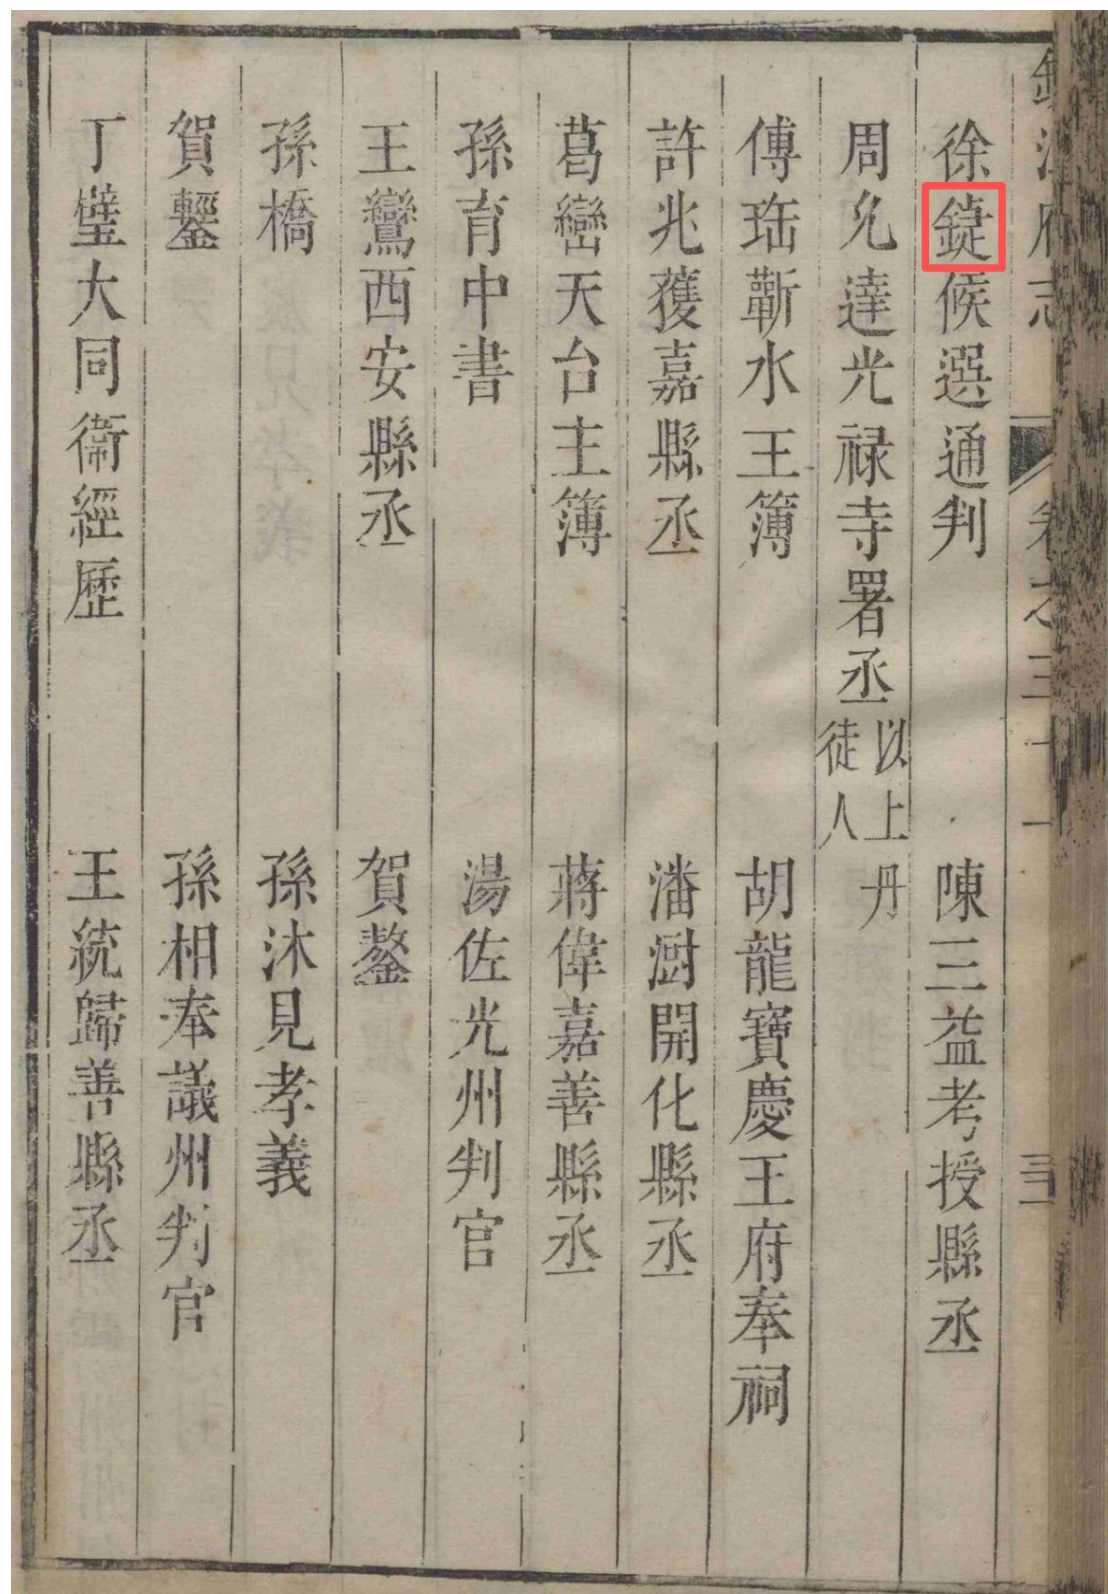 鎮江府志 卷之三十一
徐候選通判 陳三益考授縣丞
周允達光禄寺署丞以上丹徒人
傅珤蘄水王簿 胡龍寶慶王府奉祠
許兆獲嘉縣丞 潘澍開化縣丞
葛巒天台主簿 蔣偉嘉善縣丞
孫育中書 湯佐光州判官
王鸞西安縣丞 賀鏊
孫橋 孫沐見孝義
賀鑋 孫相奉議州判官
丁璧大同衛經歷 王統歸善縣丞